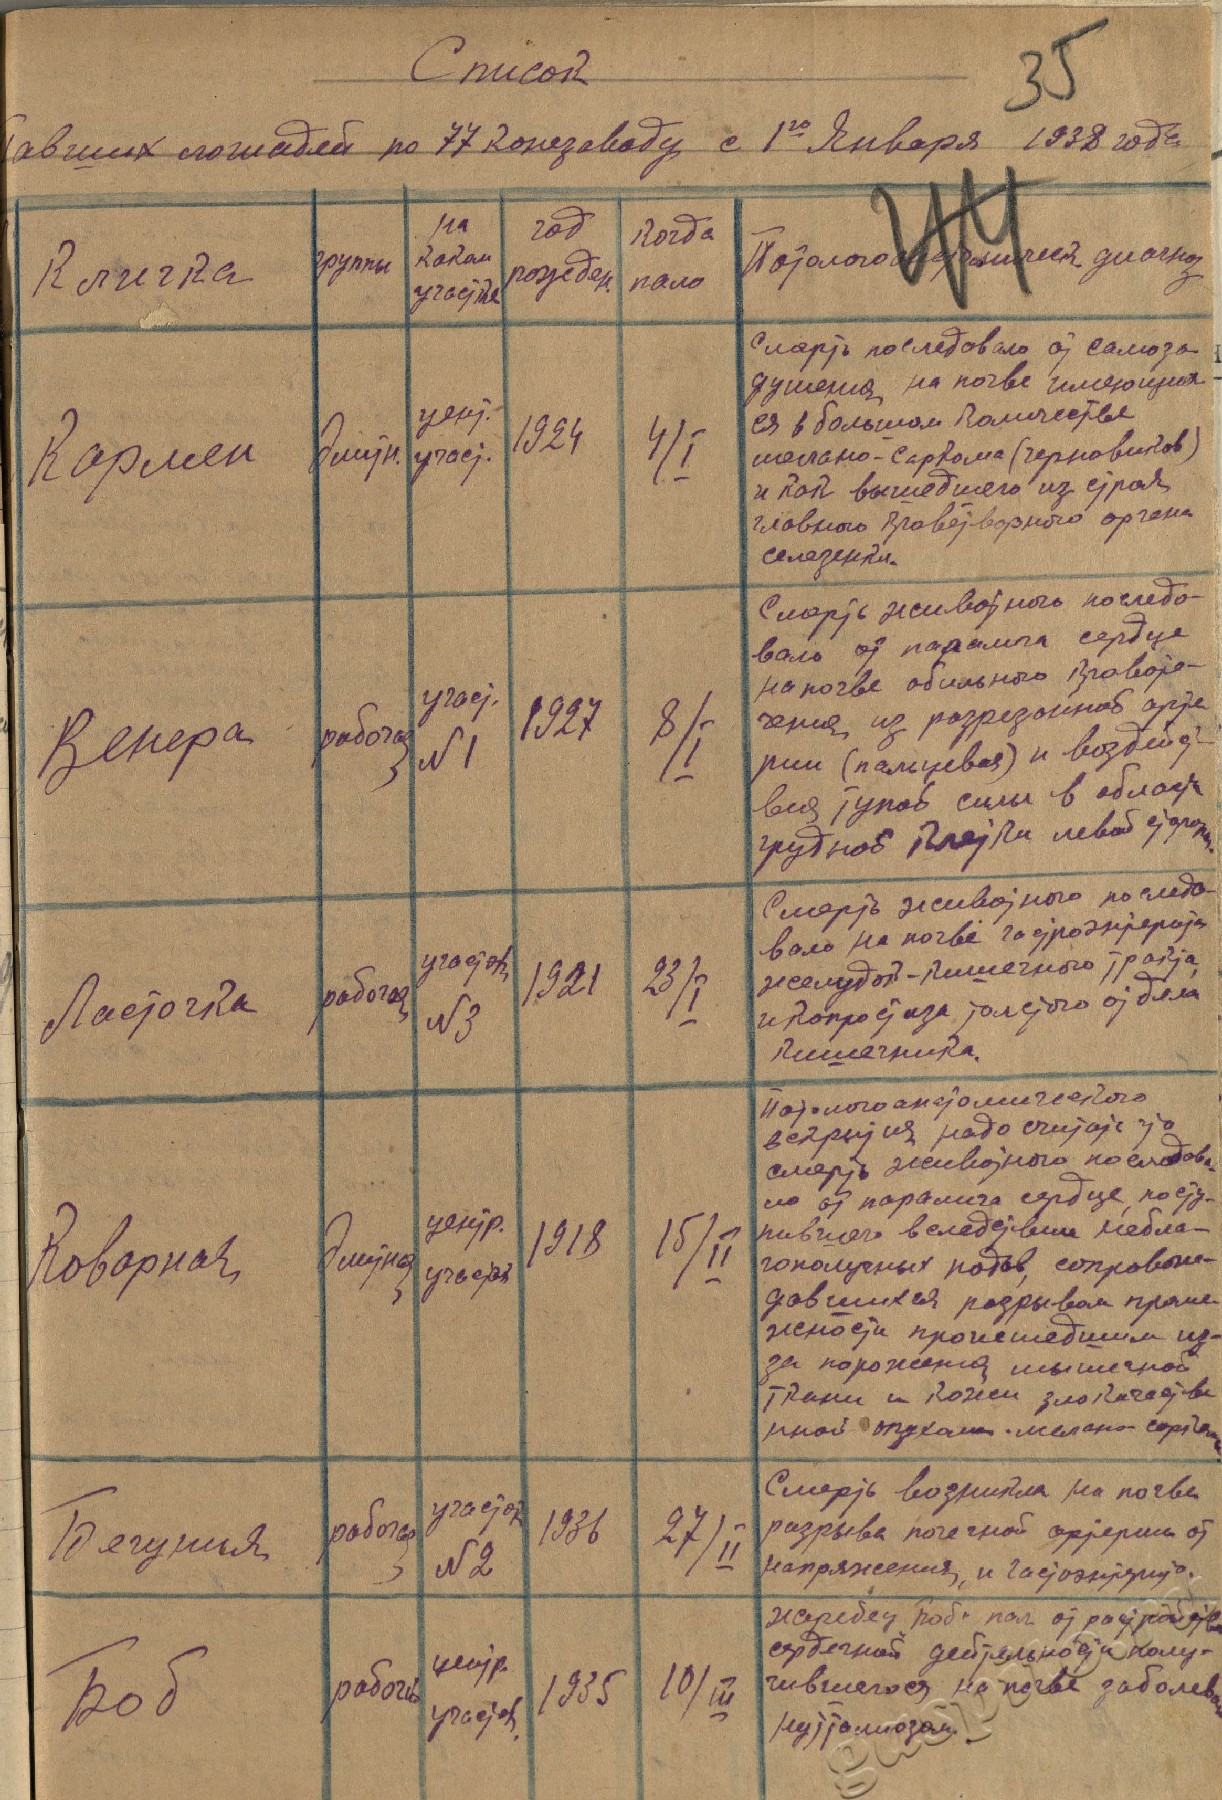 35
Список
Павших лошадей по 77 Конезаводу с 1го Января 1938 года
44
Кличка
группы
на
каком
участке
год
рожден.
когда
пало
Патологоанатомическ. диагноз
Кармен
элитн.
цент.
участ.
1924
4/I
Смерть последовало от самоза
душения, на почве имеющих
ся в большом количестве
мелано-саркома (черновиков)
и как вышедшего из строя,
главного кроветворного органа
селезенки.
Венера
рабочая
участ.
N1
1927
8/I
Смерть животного последо-
вало от паралича сердце
на почве обильного кровоте-
чения, из разрезанной арте
рии (пальцевая) и воздейст-
вия тупой силы в область
грудной клетки левой стороны.
Ласточка
рабочая
участок
N3
1921
23/I
Смерть животного последо-
вало на почве гастроэнтерита
желудок-кишечного тракта,
и копростаза толстого отдела
кишечника.
Коварная
элитная
центр.
участок
1918
15/II
Патологоанатомического
вскрытия, надо считать что
смерть животного последова-
ло от паралича сердце, посту-
пившего вследствии небла-
гополучных родов, сопровож-
давшихся разрывом проме
жности происшедшим из-
за поражения мышечной
ткани и кожи злокачестве
нной опухоли - мелано-саркома
Бегунья
рабочая
участок
N2
1936
27/II
Смерть возникла на почве
разрыва почечной артерии от
напряжения, и гастоэнтерита.
Боб
рабочий
центр.
участок.
1935
10/III
жеребец Боб. пал от растройства
сердечной деятельности полу-
чившегося на почве заболева
нутталиозом.